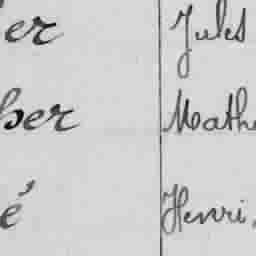 er Jules
ber Mathe
é Henri,